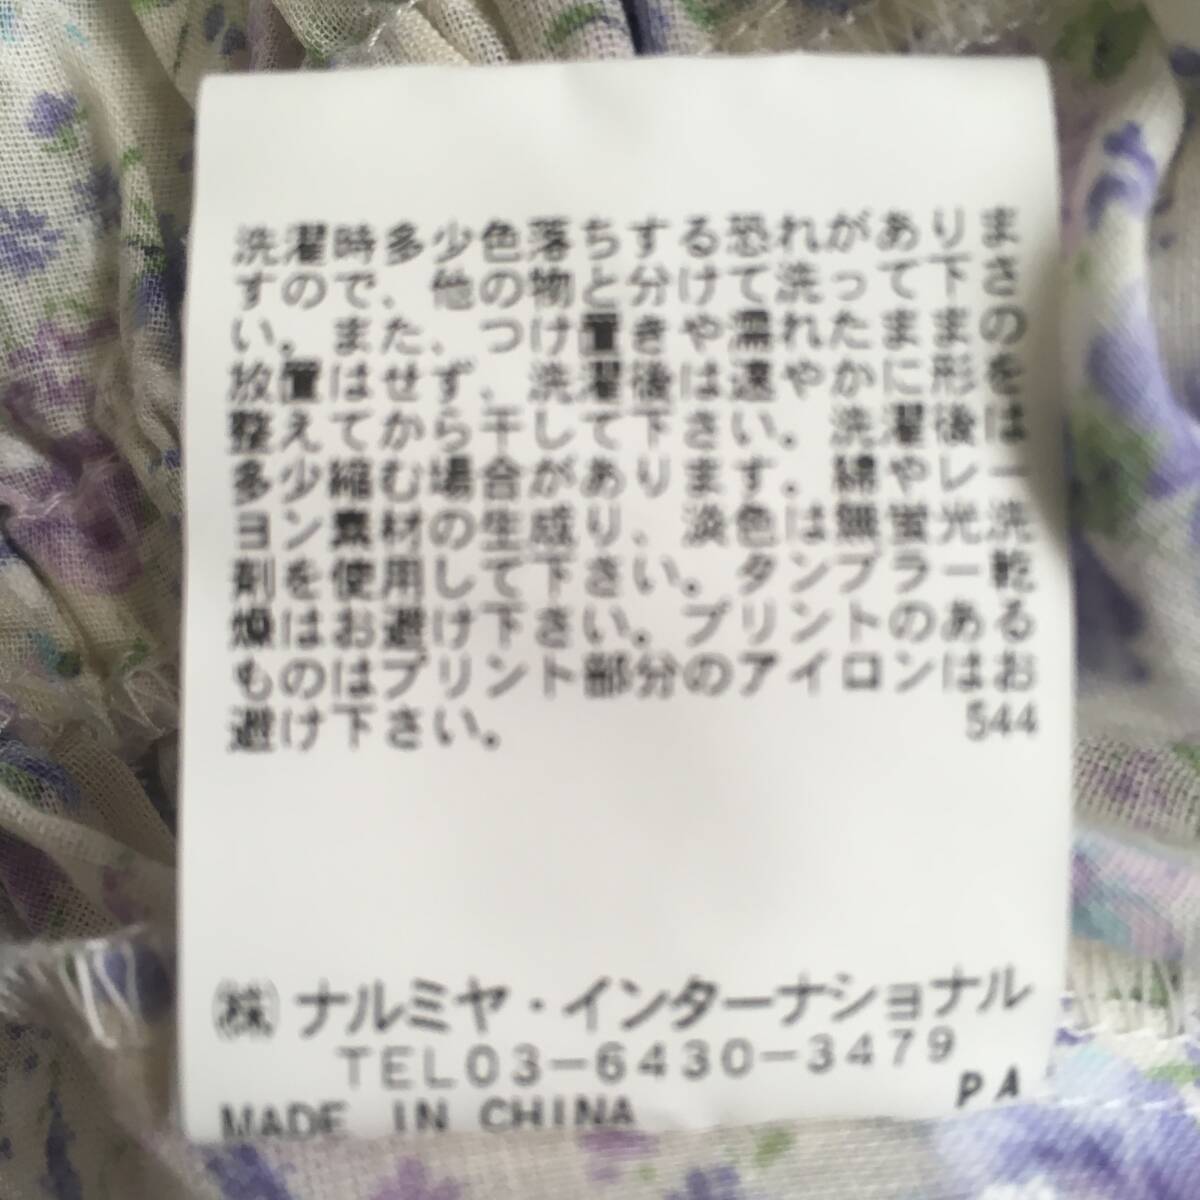 洗濯時多少色落ちする恐れがありま
すので、他の物と分けて洗って下さ
い。また、つけ置きや濡れたままの
放置はせず、洗濯後は速やかに形を
整えてから干して下さい。洗濯後は
多少縮む場合があります。綿やレー
ヨン素材の生成り、淡色は無蛍光洗
剤を使用して下さい。タンブラー乾
燥はお避け下さい。プリントのある
ものはプリント部分のアイロンはお
避け下さい。 544
㈱ナルミヤ・インターナショナル
TEL03-6430-3479
PA
MADE IN CHINA